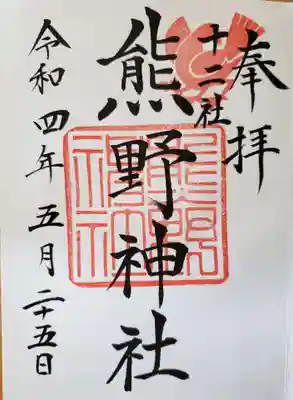 奉拝
十二社
熊野神社
令和四年五月二十五日
熊野神社